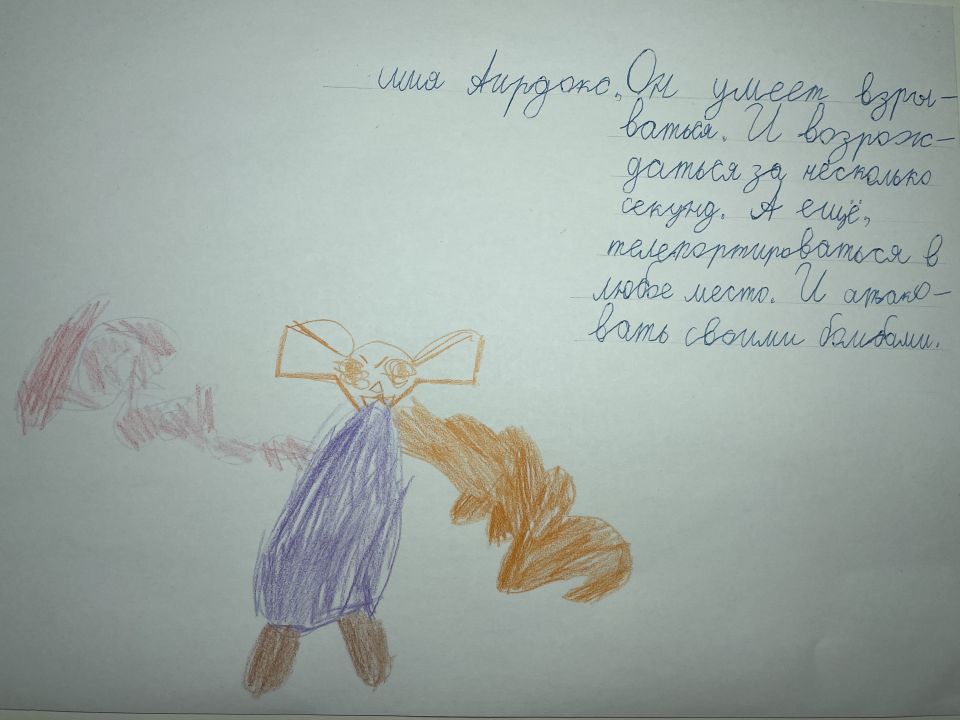 имя Аирдокс, Он умеет взры-
ваться. И возрож-
даться за несколько
секунд. А ещё,
телепортироваться в
любое место. И атако-
вать своими бомбами.